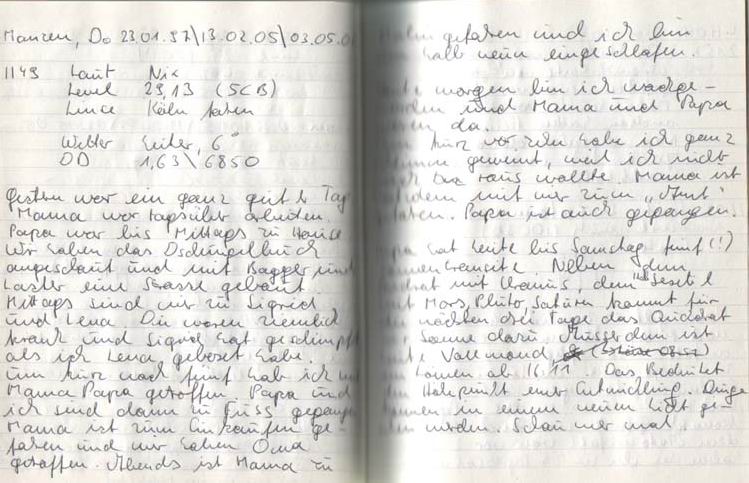 Manzen, Do 23.01.97\13.02.05\03.05.0
1149 Laut Nix
Level 29,13 (SCB)
Lince Köln fahren
Wetter heiter, 6°
OD 1,63\6850
Gestern war ein ganz guter Tag
Mama war tagsüber arbeiten.
Papa war bis Mittags zu Hause
Wir haben das Dschungelbuch
angeschaut und mit Bagger und
Laster eine Strasse gebaut.
Mittags sind wir zu Sigrid
und Lena. Die waren ziemlich
krank und Sigrid hat geschimpft
als ich Lena geboxt habe.
Um kurz nach fünf hab ich
Mama Papa getroffen. Papa und
ich sind dann zu Fuss gegangen
Mama ist zum Einkaufen ge-
fahren und wir haben Oma
getroffen. Abends ist Mama zu
gefahren und ich bin
halb neun eingeschlafen.
morgen bin ich wachge-
und Mama und Papa
da.
kurz vor zehn habe ich ganz
geweint, weil ich nicht
raus wollte. Mama ist
mit mir zum "Amt"
Papa ist auch gegangen.
hat heute bis Samstag fünf (!)
Neben dem
mit Uranus, dem Sextil
Mars, Pluto, Saturn kommt für
nächsten drei Tage das Quadrat
Sonne dazu. Ausserdem ist
Vollmond
ab 16 11. Das bedeutet
Höhepunkt einer Entwicklung. Dinge
in einem neuen Licht ge-
werden. Schau wer mal